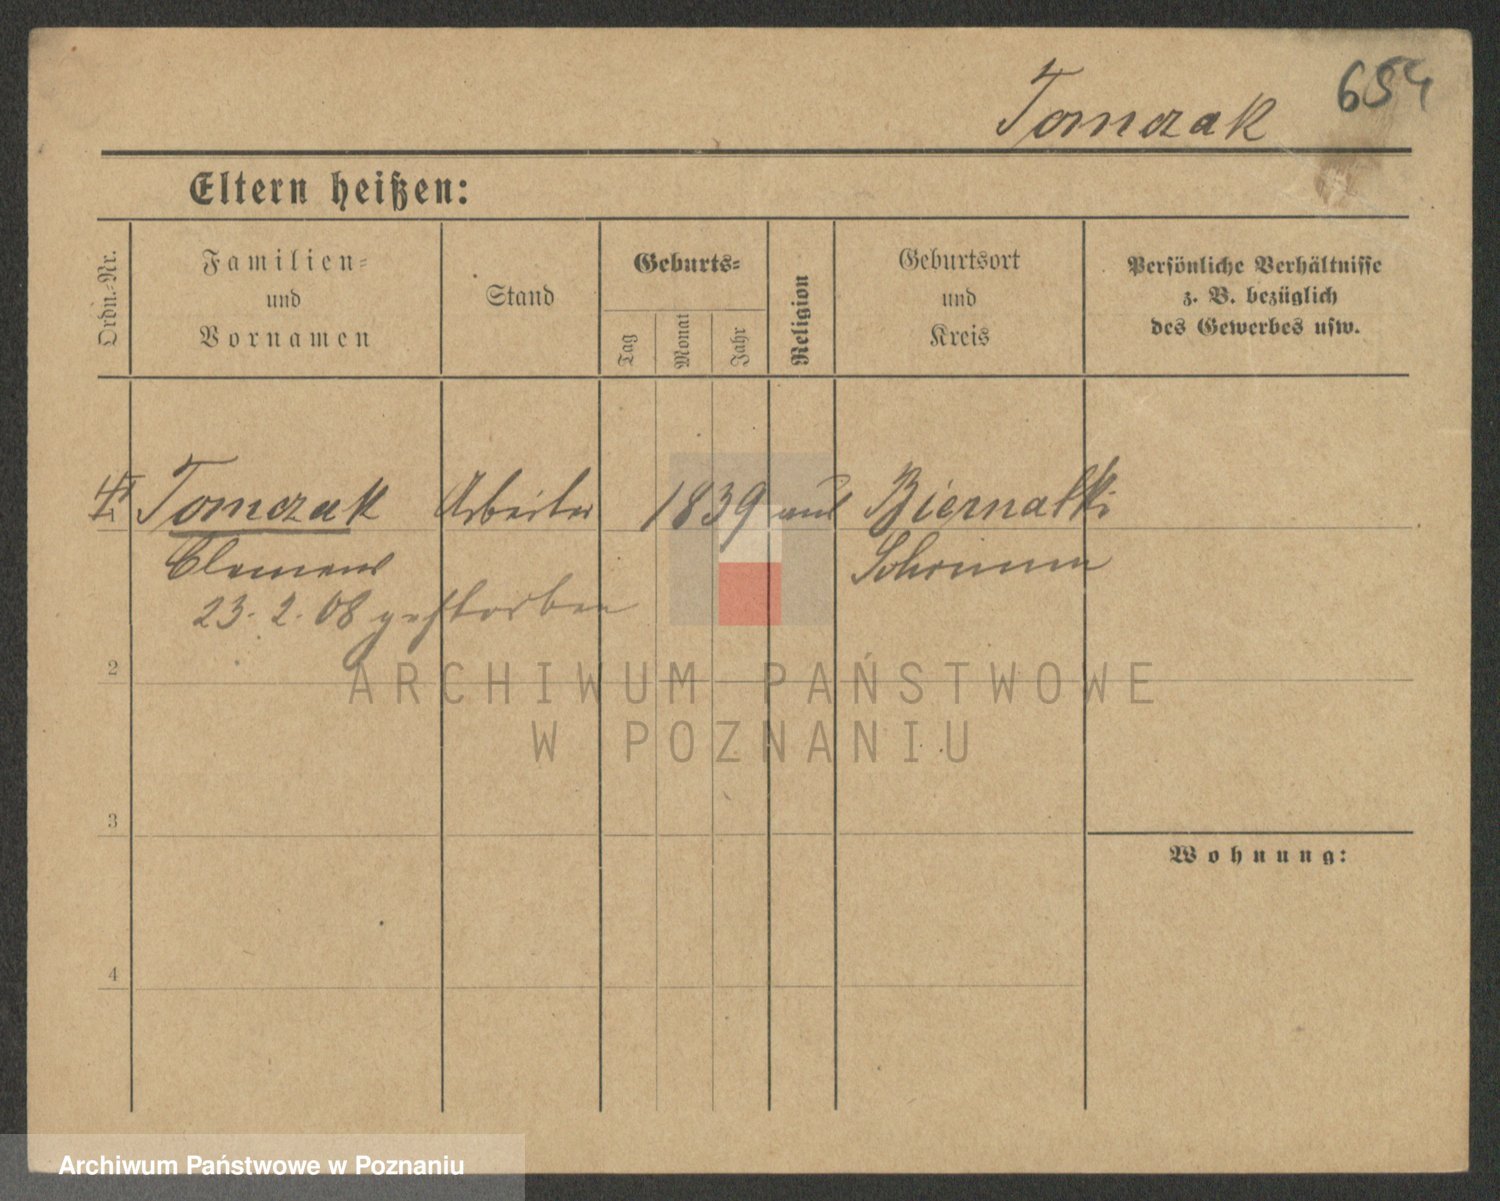 654
Tomczak
Eltern heißen:
Ordn.-Nr.
Familien-
und
Vornamen
Stand
Geburts-
Tag
Monat
Jahr
Religion
Geburtsort
und
Kreis
Persönliche Verhältnisse
z. B. bezüglich
des Gewerbes usw.
Tomczak Arbeiter 1839 Biernatki
Clemens Schrimm
23. 2. 08 gestorben
2
ARCHIWUM PAŃSTWOWE
W POZNANIU
3
Wohnung:
4
Archiwum Państwowe w Poznaniu